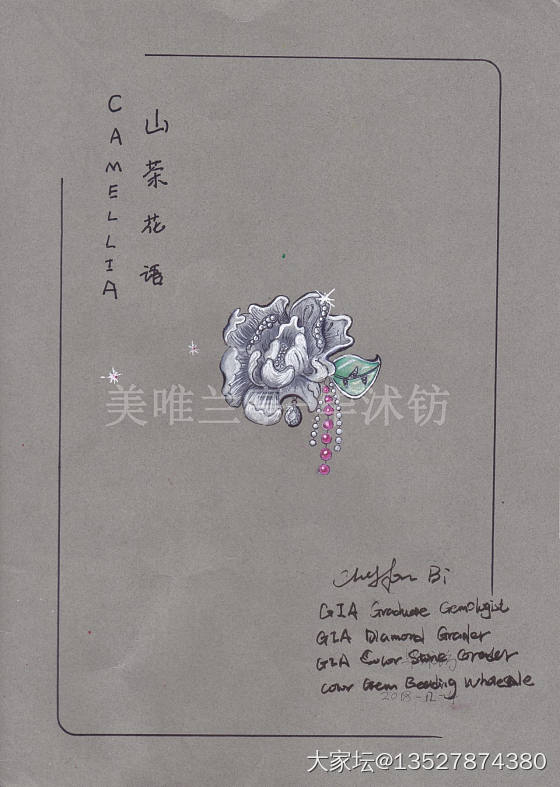 CAMELLIA
山茶花语
美唯兰
沭钫
Bi
GIA Graduate Gemologist
GIA Diamond Grader
GIA Color Stone Grader
Color Gem Beading Wholesale
大家坛@13527874380